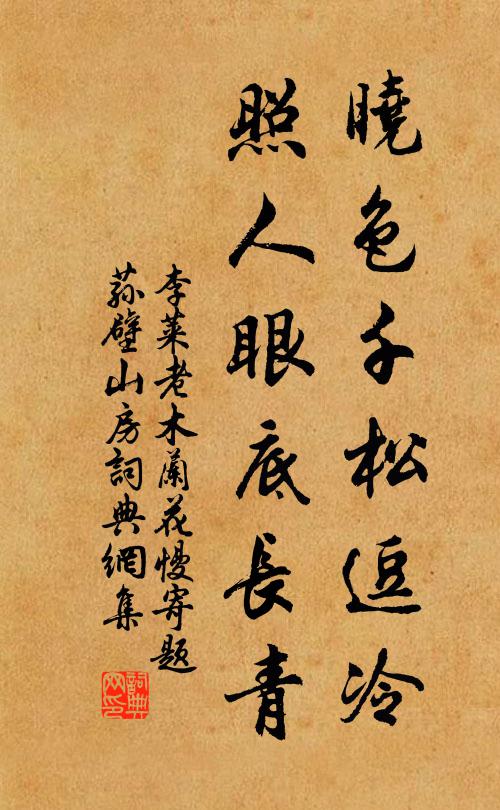 曉色千松逗冷
照人眼底長青
李萊老木蘭花慢寄題
蓀壁山房詞典網集
詞典網印